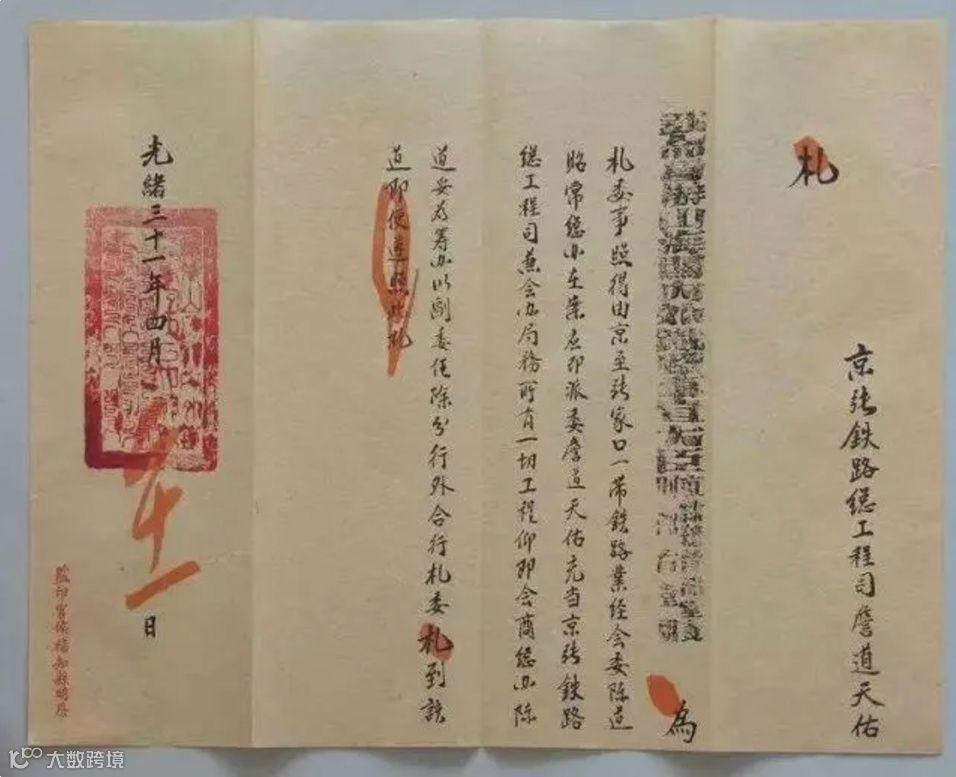 京張鉄路總工程司詹道天佑
札
為
札委事照得由京至張家口一帶鉄路業經会委陳道
昭常總办在案应即派委詹道天佑充当京張鉄路
總工程司兼会办局務所有一切工程仰即会商總办陳
道妥为筹办以副委任除分行外合行札委札到該
道即便遵照此札
光緒三十一年四月 日
監印官候補知縣
大数跨境